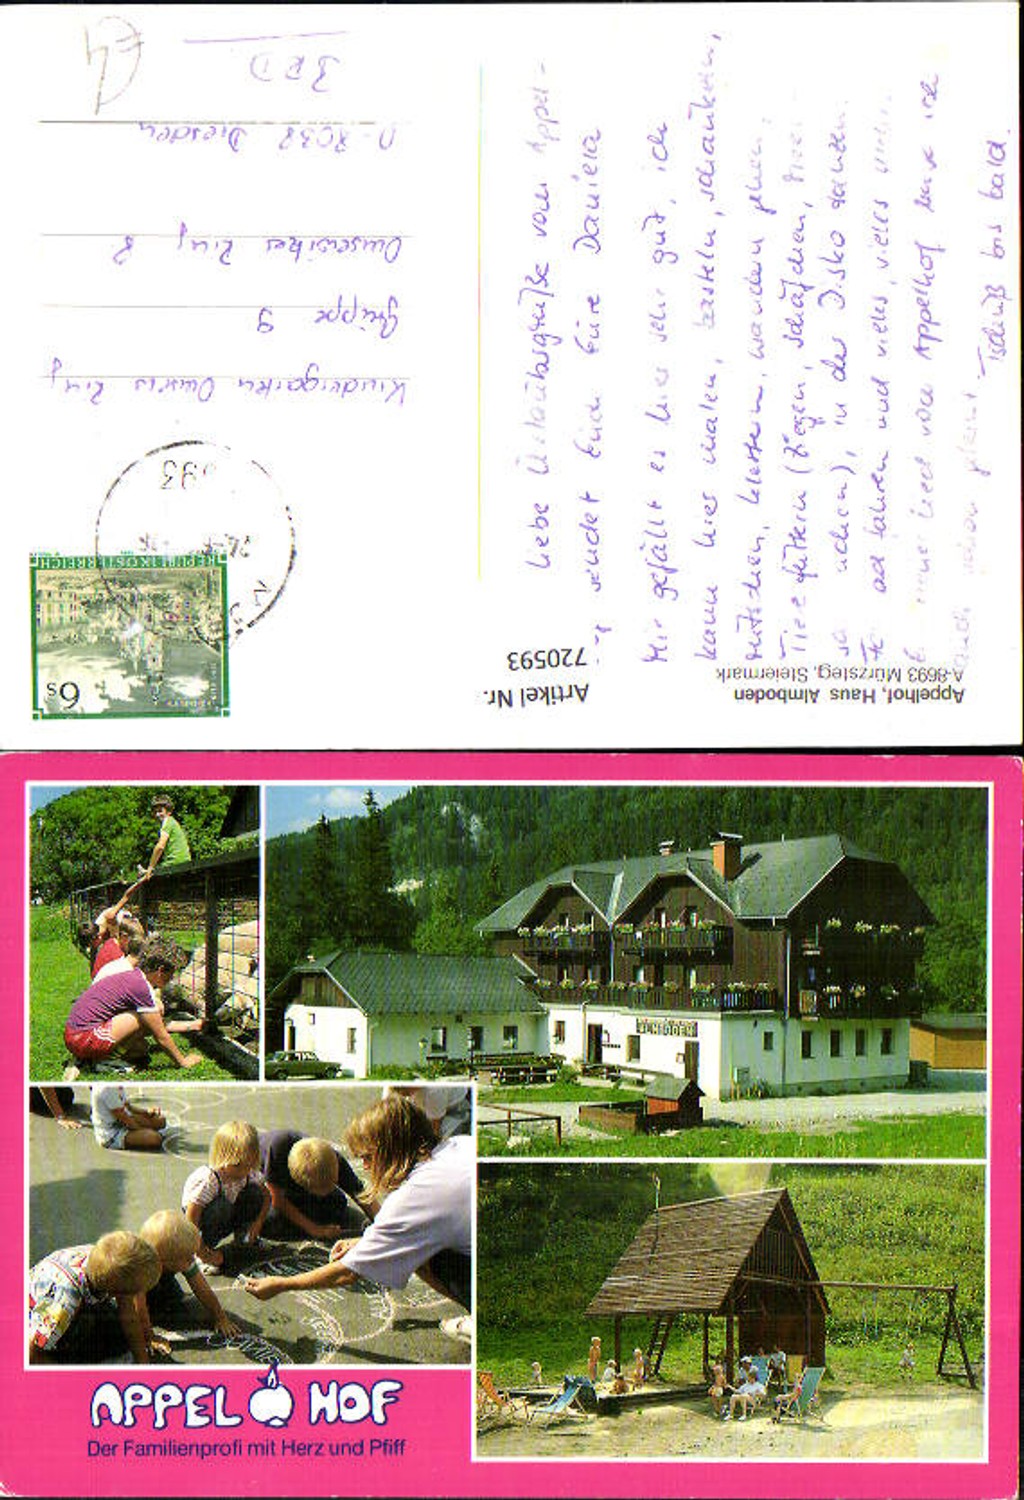 €4
BRD
D-8038 Dresden
Omsewitzer Ring 8
Gruppe 9
Kindergarten Omsew. Ring
93
REPUBLIK ÖSTERREICH
6s
Artikel Nr.
720593
Appelhof, Haus Almboden
A-8693 Mürzsteg, Steiermark
Liebe Urlaubsgrüße vom Appel-
sendet Euch Eure Daniela
Mir gefällt es hier sehr gut, ich
kann hier malen, basteln, schaukeln,
rutschen, klettern, wandern gehen,
Tiere füttern (Ziegen, Schäfchen,
in der Disko tanzen
fahren und vieles, vieles mehr.
Lied vom Appelhof kann ich
auch schon
Tschüß bis bald.
ALMBODEN
APPEL HOF
Der Familienprofi mit Herz und Pfiff